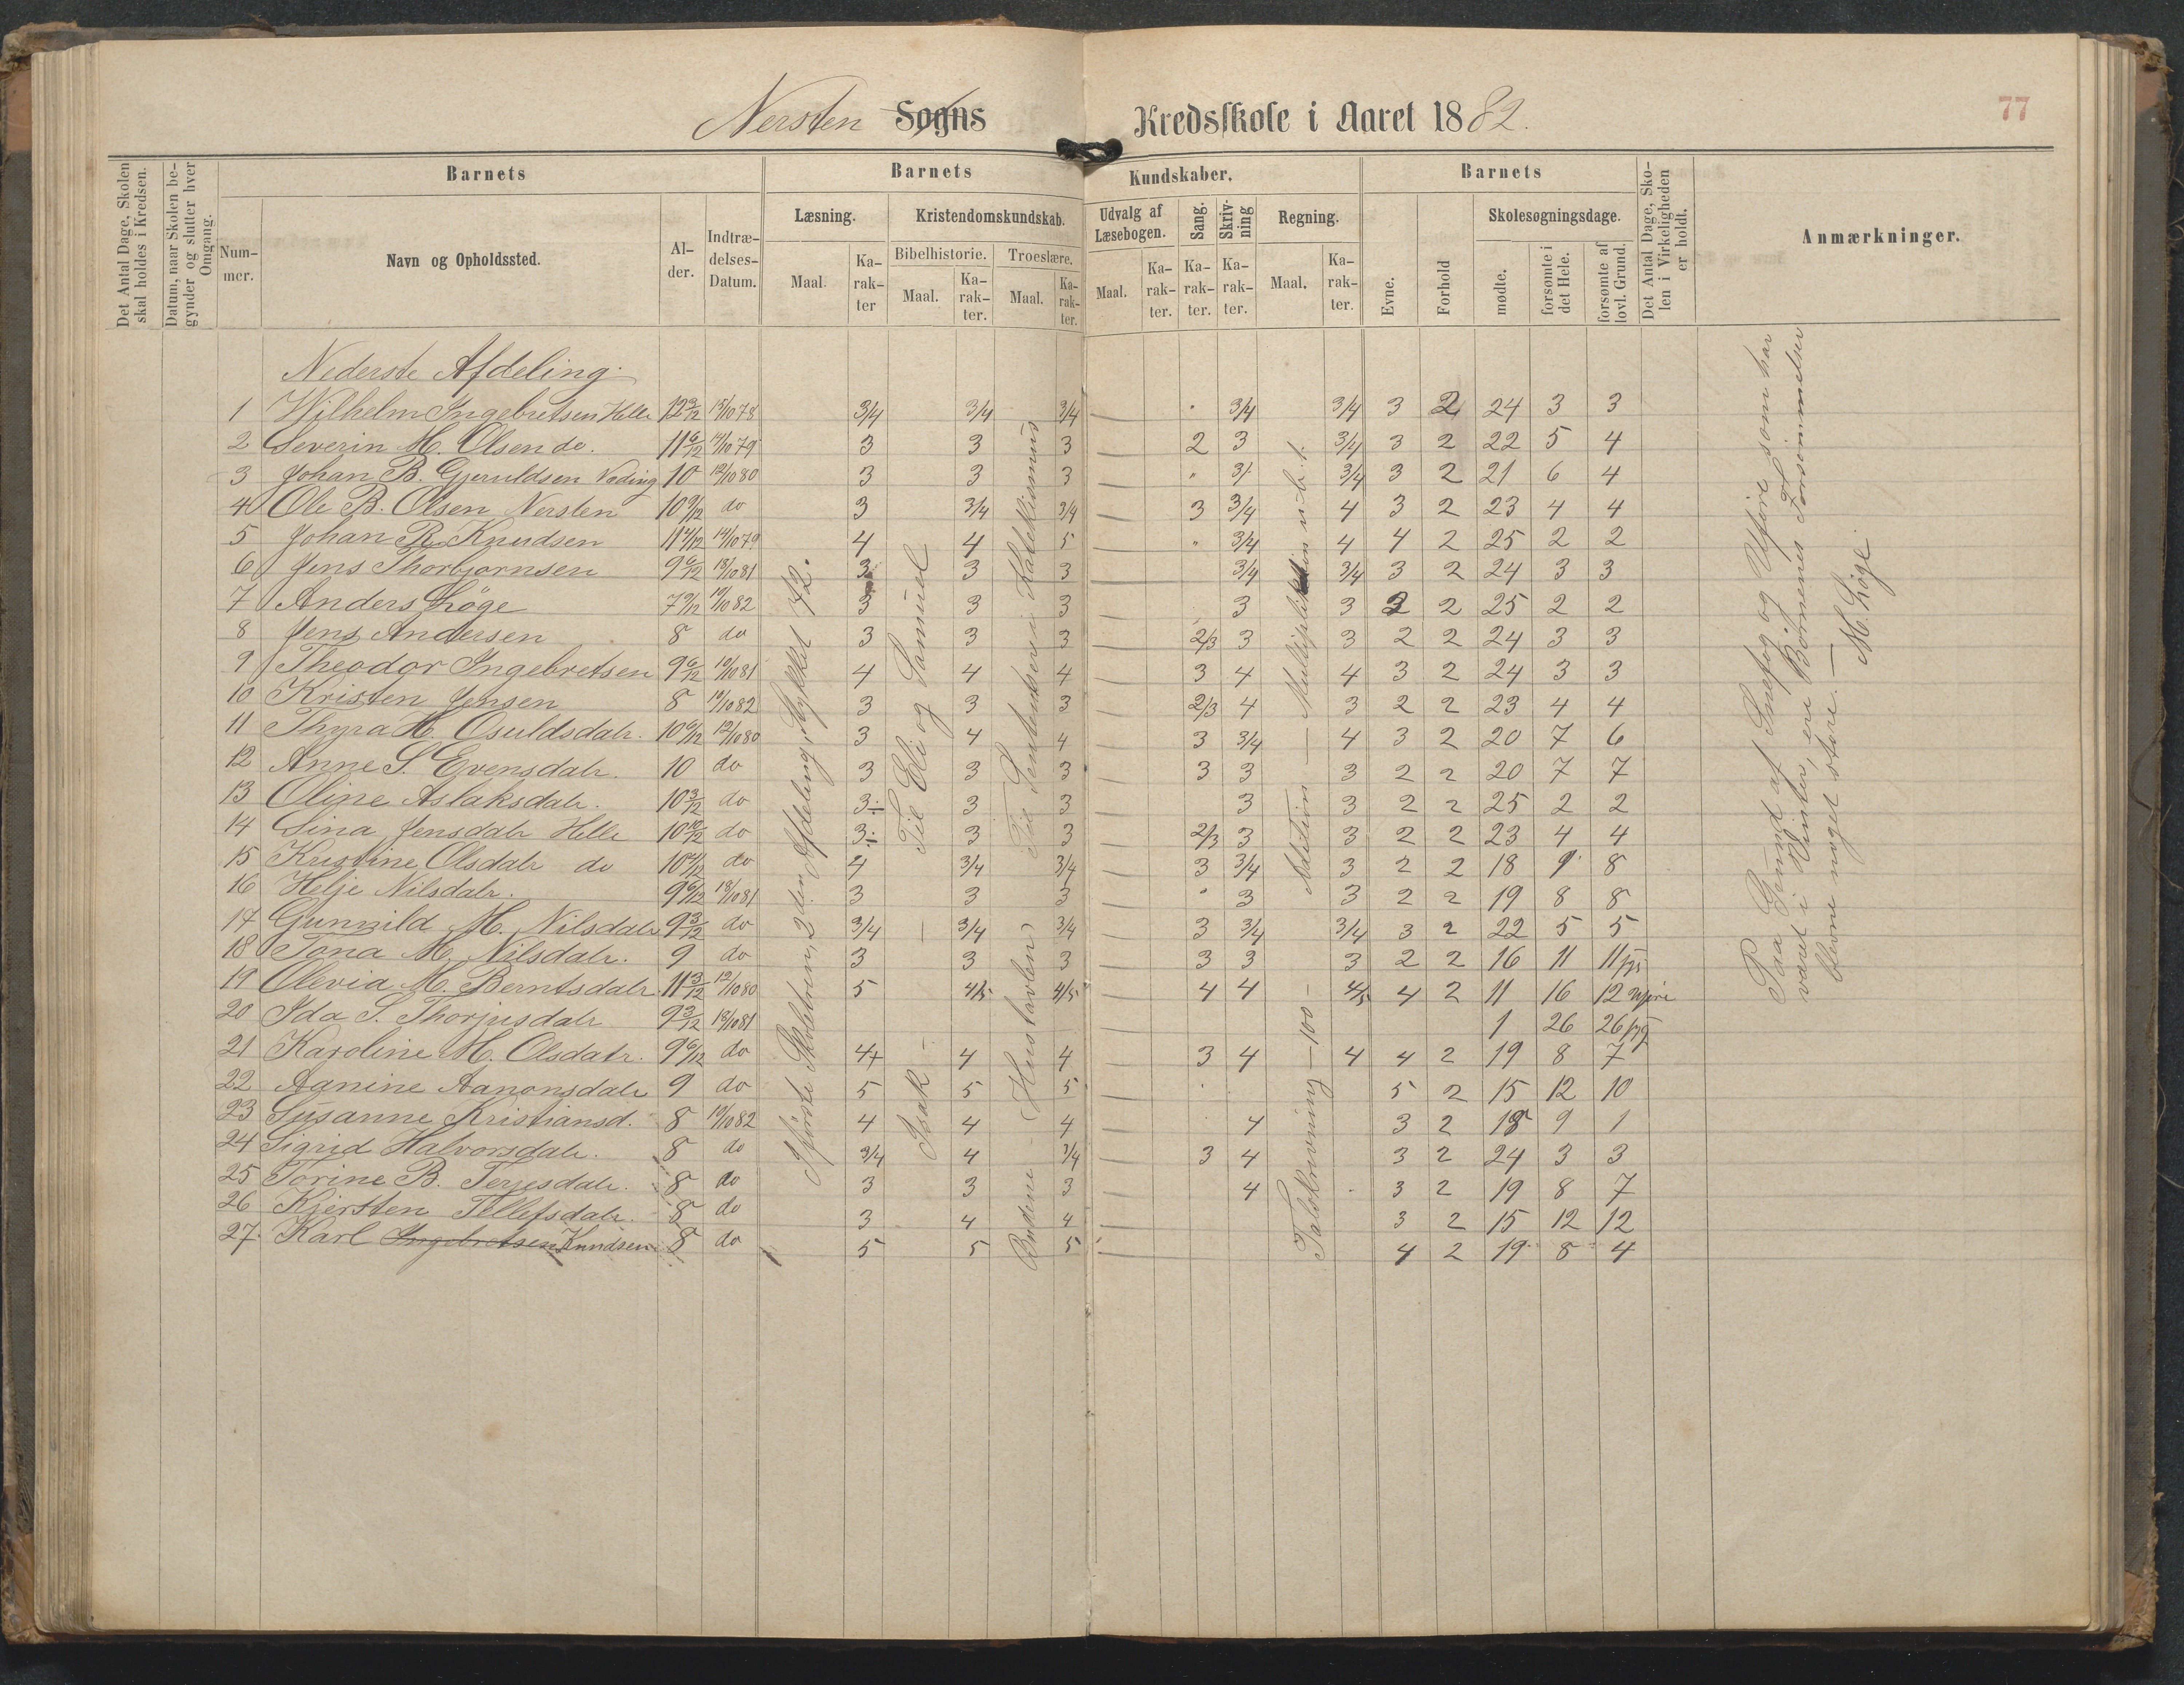 Nersten Sogns Kredsskole i Aaret 1882.
77
Det Antal Dage, Skolen skal holdes i Kredsen.
Datum, naar Skolen begynder og slutter hver Omgang.
Barnets
Nummer.
Navn og Opholdssted.
Alder.
Indtrædelses-Datum.
Barnets Kundskaber.
Læsning.
Maal.
Karakter
Kristendomskundskab.
Bibelhistorie.
Maal.
Karakter.
Troeslære.
Maal.
Karakter.
Udvalg af Læsebogen.
Maal.
Karakter.
Sang.
Karakter.
Skrivning
Karakter.
Regning.
Maal.
Karakter.
Barnets
Evne.
Forhold
Skolesøgningsdage.
mødte.
forsømte i det Hele.
forsømte af lovl. Grund.
Det Antal Dage, Skolen i Virkeligheden er holdt.
Anmærkninger.
Nederste Afdeling.
1 Wilhelm Ingebretsen Helle 12 9/12 15/10 78 3/4 3/4 3/4 — 3/4 3/4 3 2 24 3 3
2 Severin M. Olsen do. 11 6/12 14/10 79 3 3 3 — 2 3 3/4 3 2 22 5 4
3 Johan B. Gjeruldsen Væding 10 12/10 80 3 3 3 — " 3/ 3/4 3 2 21 6 4
4 Ole B. Olsen Nersten 10 9/12 do 3 3/4 3/4 — 3 3/4 4 3 2 23 4 4
5 Johan R. Knudsen 14/10 79 4 4 5 — " 3/4 4 4 2 25 2 2
6 Jens Thorbjørnsen 9 6/12 13/10 81 3 3 3 — 3/4 3/4 3 2 24 3 3
7 Anders Løge 7 9/12 19/10 82 3 3 3 — 3 3 2 25 2 2
8 Jens Andersen 8 do 3 3 3 — 2/3 3 3 2 2 24 3 3
9 Theodor Ingebretsen 9 6/12 4 4 4 — 3 4 4 3 2 24 3 3
10 Kristen Jensen 8 19/10 82 3 3 3 — 2/3 4 3 2 2 23 4 4
11 Thyra H. Osuldsdatr. 10 6/12 12/10 80 3 4 4 — 3 3/4 4 3 2 20 7 6
12 Anne S. Evensdatr. 10 do 3 3 3 — 3 3 3 2 2 20 7 7
13 Oline Aslaksdatr. 10 3/12 do 3÷ 3 3 — 3 3 2 2 25 2 2
14 Sina Jensdatr Helle 10 10/12 do 3÷ 3 3 — 2/3 3 3 2 2 23 4 4
15 Kristine Olsdatr do do 4 3/4 3/4 — 3 3/4 3 2 2 18 9 8
16 Helje Nilsdatr. 9 6/12 13/10 81 3 3 3 — " 3 3 2 2 19 8 8
17 Gunvild M. Nilsdatr 9 3/12 do 3/4 3/4 3/4 — 3 3/4 3/4 3 2 22 5 5
18 Tona M. Nilsdatr. 9 do 3 3 3 — 3 3 3 2 2 16 11 11
19 Olevia M. Berntsdatr 11 3/12 12/10 80 5 4/5 4/5 — 4 4 4/5 4 2 11 16 12 Uføre
20 Ida S. Thorjusdatr 9 3/12 13/10 81 1 26 26 syg
21 Karoline M. Olsdatr. 9 6/12 do 4+ 4 4 — 3 4 4 4 2 19 8 7
22 Aanine Aanonsdatr 9 do 5 5 5 — 5 2 15 12 10
23 Susanne Kristiansd. 8 19/10 82 4 4 4 — 4 3 2 18 9 1
24 Sigrid Halvorsdatr. 8 do 3/4 4 3/4 — 3 4 3 2 24 3 3
25 Torine B. Terjesdatr. 8 do 3 3 3 — 4 3 2 19 8 7
26 Kjersten Tellefsdatr. 8 do 3 4 4 — 3 2 15 12 12
27. Karl Ingebretsen Knudsen 8 do 5 5 5 — 4 2 19 8 4
første Skoletrin, 2den Afdeling, Stykket 72.
Isak — Til Eli og Samuel
Budene — Hustavlen Til Sententsen i Katekismus
Talskrivning — 100 — Addition — Multiplikation
Paa Grund af Snefog og Uføre som har
været i Vinter, ere Børnenes Forsømmelser
blevne noget større. —
M. Løge